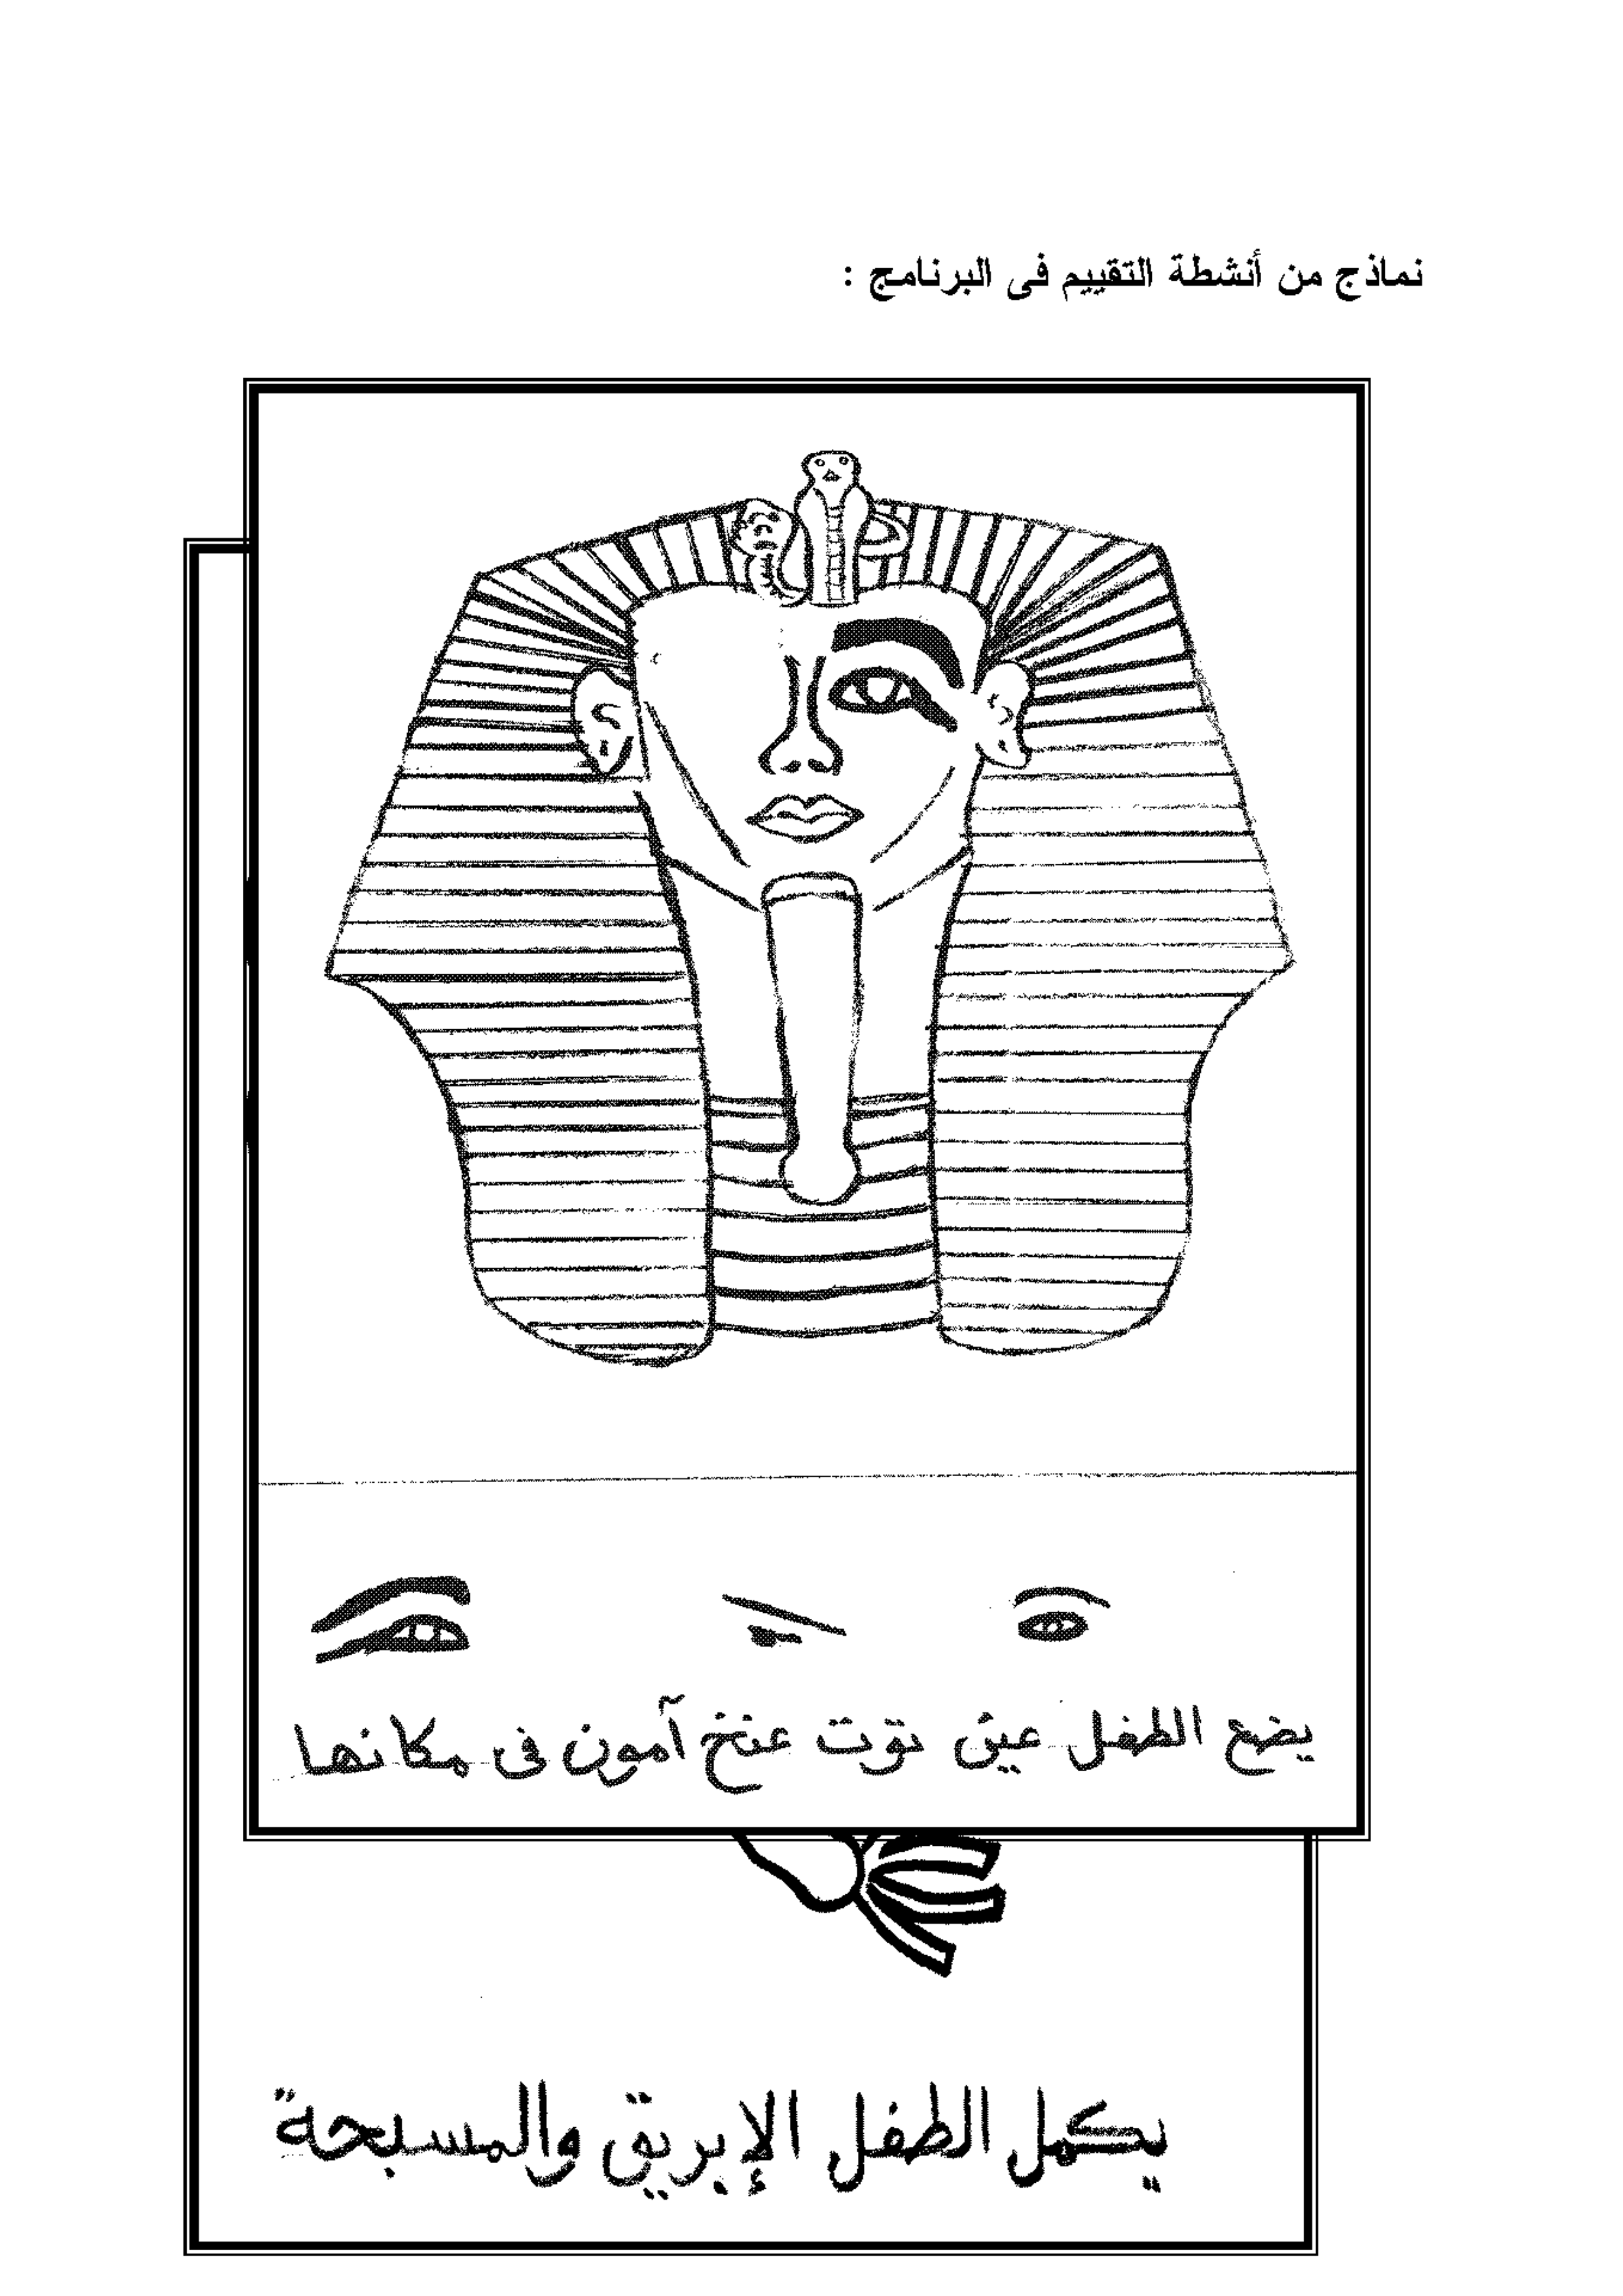 نماذج من أنشطة التقييم فى البرنامج :
يضع الطفل عين توت عنخ آمون فى مكانها
يكمل الطفل الإبريق والمسبحة